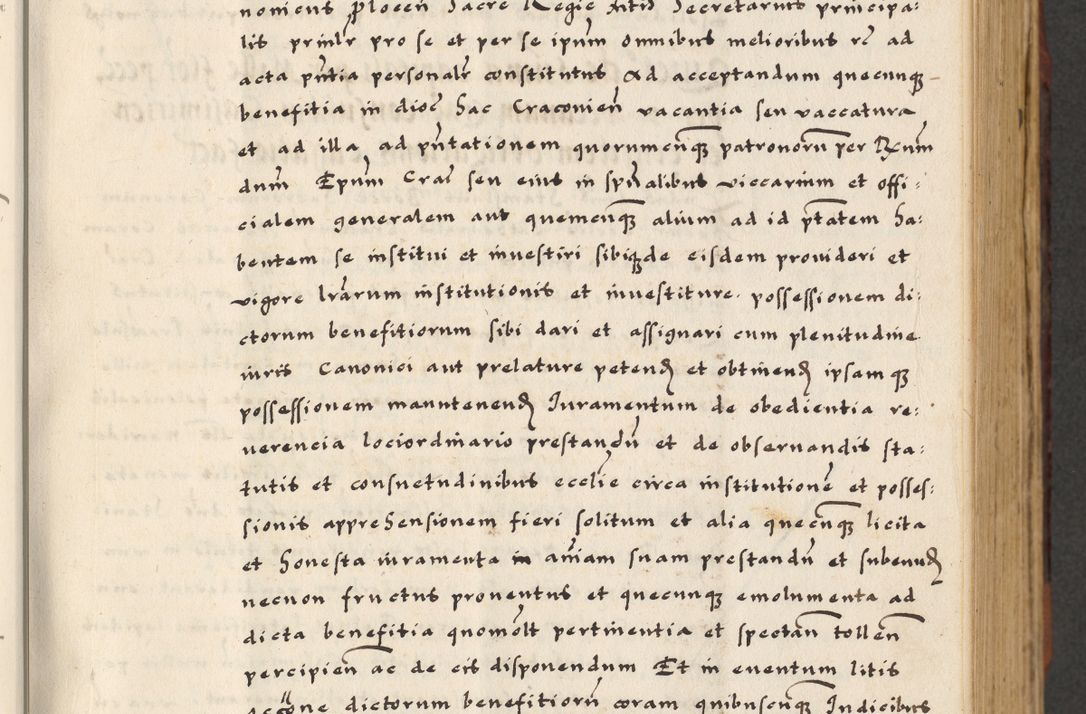 nomicus plocen Sacre Regie Mtis Secretarius principa-
lis prinlr pro se et per se ipum omnibus melioribus rc ad
acta pntia personalr constitutus Ad acceptandum quecunq
benefitia in dioc hac Craconien vacantia seu vaccatura
et ad illa, ad pntationem quorumcunq patronorum per Rxum
dum Epum Crac seu eius in spualibus viccarium et offi:
cialem generalem aut quemcunq alium ad id ptatem ha:
bentem se institui et investiri sibiq de eisdem provideri et
vigore lrarum institutionis et investiture possessionem di:
ctorum benefitiorum sibi dari et assignari cum plenitudine
iuris Canonici aut prelature petend et obtinend ipsam q
possessionem manutenend Iuramentum de obedientia re:
verencia lociordinario prestandu et de observandis sta:
tutis et consuetudinibus ecclie circa institutione et posses:
sionis apprehensionem fieri solitum et alia quecunq licita
et honesta iuramenta in aniam suam prestandu et subeund
necnon fructus proventus et quecunq emolumenta ad
dicta benefitia quomolt pertinentia et spectan tollen
percipien ac de eis disponendum Et in eventum litis
dictorum benefitioru coram quibuscunq Iudicibus